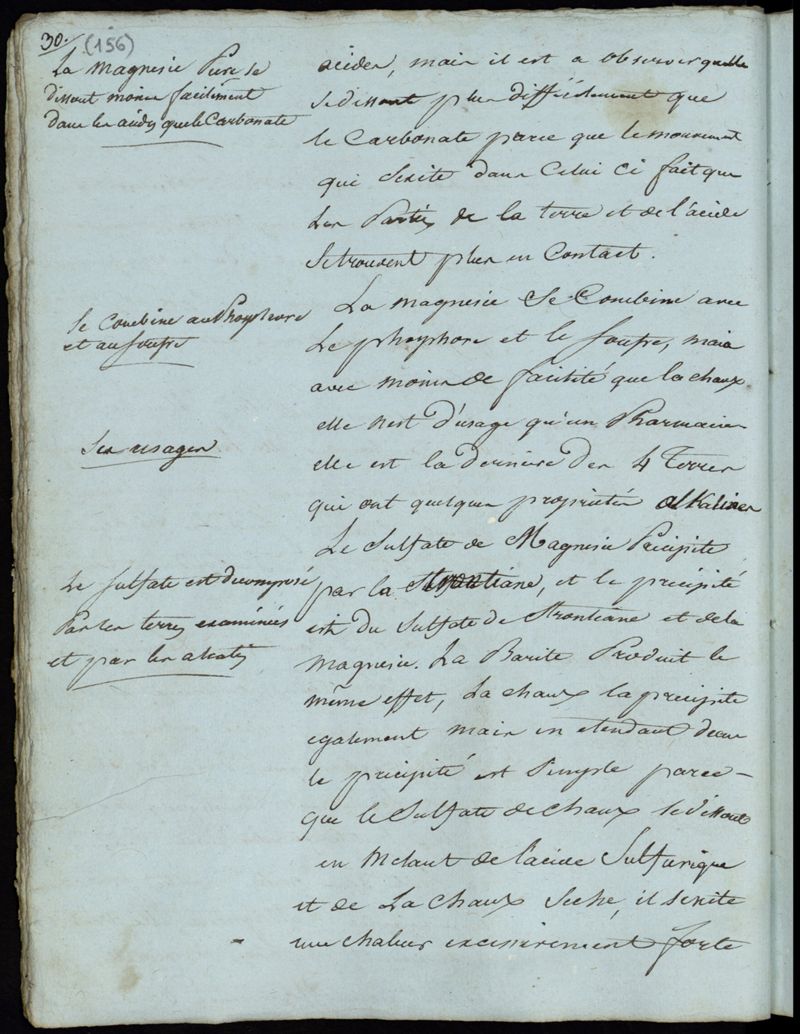 30. (156)
La magnesie Pure se
dissout moins facilement
dans les acides que le Carbonate
acides, mais il est a observer quelle
se dissout plus difficilement que
le Carbonate parce que le mouvement
qui S'exite dans Celui Ci fait que
Les Parties de la terre et de l'acide
Se trouvent plus en Contact.
Se Combine au Phosphore
et au soufre
La magnesie Se Combine avec
Le phosphore et le soufre, mais
avec moins de facilité que la chaux
elle n'est d'usage qu'en Pharmacie
Ses usages
elle est la derniere des 4 Terres
qui ont quelques proprietés alkalines
Le Sulfate de Magnesie Précipite
Le sulfate est decomposé
Par les terres examinées
et par les alcalis
par la Strontiane, et le précipité
est du Sulfate de Strontiane et de la
magnesie. La Barite Produit le
même effet, La chaux la precipite
egalement mais en etendant d'eau
le precipité est Simple parce-
que le Sulfate de chaux se dissout
en Melant de l'acide Sulfurique
et de La chaux Seche, il s'exite
une chaleur excessivement forte